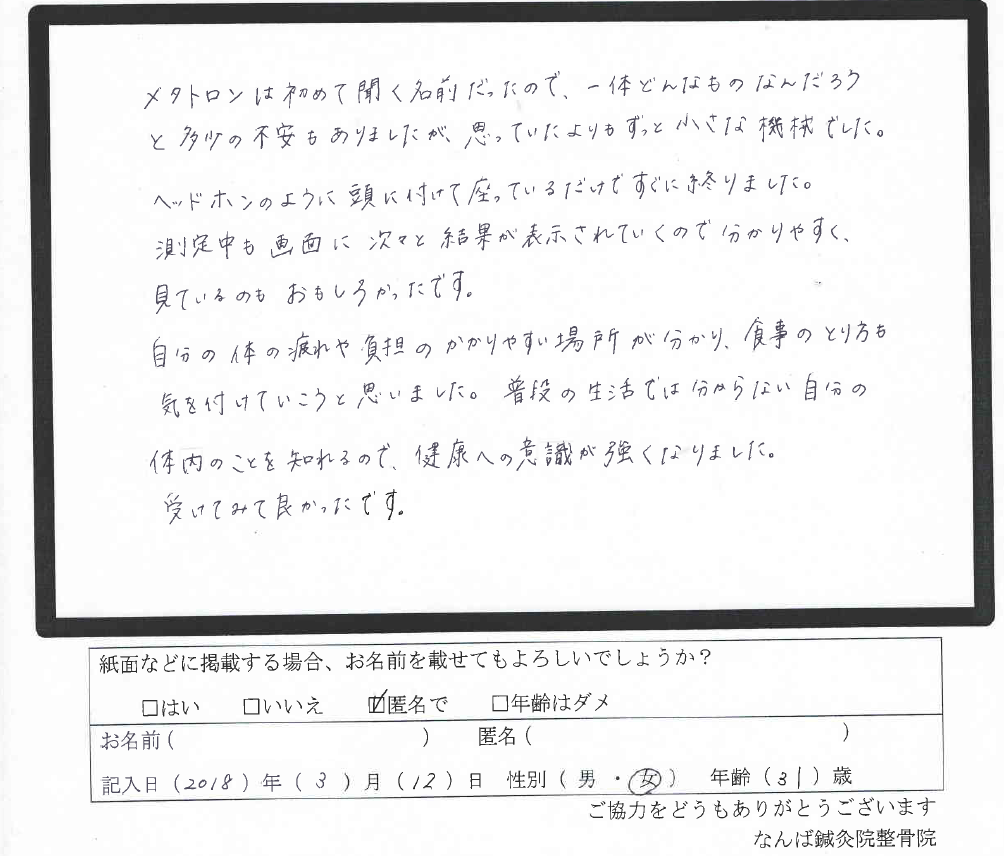 メタトロンは初めて聞く名前だったので、一体どんなものなんだろう
と多少の不安もありましたが、思っていたよりもずっと小さな機械でした。
ヘッドホンのように頭に付けて座っているだけですぐに終りました。
測定中も画面に次々と結果が表示されていくので分かりやすく、
見ているのもおもしろかったです。
自分の体の疲れや負担のかかりやすい場所が分かり、食事のとり方も
気を付けていこうと思いました。普段の生活では分からない自分の
体内のことを知れるので、健康への意識が強くなりました。
受けてみて良かったです。
紙面などに掲載する場合、お名前を載せてもよろしいでしょうか？
□はい □いいえ ☑匿名で □年齢はダメ
お名前（ ） 匿名（ ）
記入日（2018）年（3）月（12）日 性別（男・女） 年齢（31）歳
ご協力をどうもありがとうございます
なんば鍼灸院整骨院